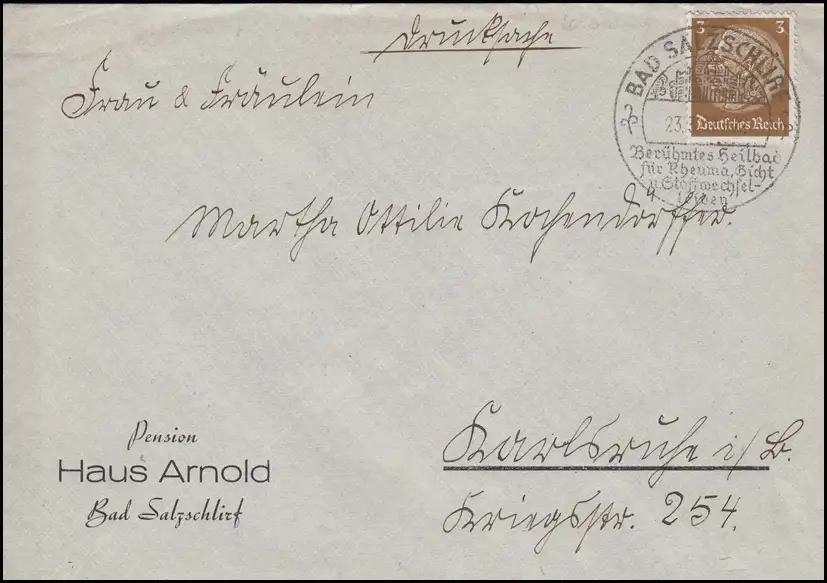 Drucksache
3 3
Deutsches Reich
BAD SALZSCHLIRF
23.
Berühmtes Heilbad
für Rheuma, Gicht
u. Stoffwechsel-
leiden
Frau & Fräulein
Martha Ottilie Kochendörffer.
Karlsruhe i/B.
Kriegsstr. 254.
Pension
Haus Arnold
Bad Salzschlirf